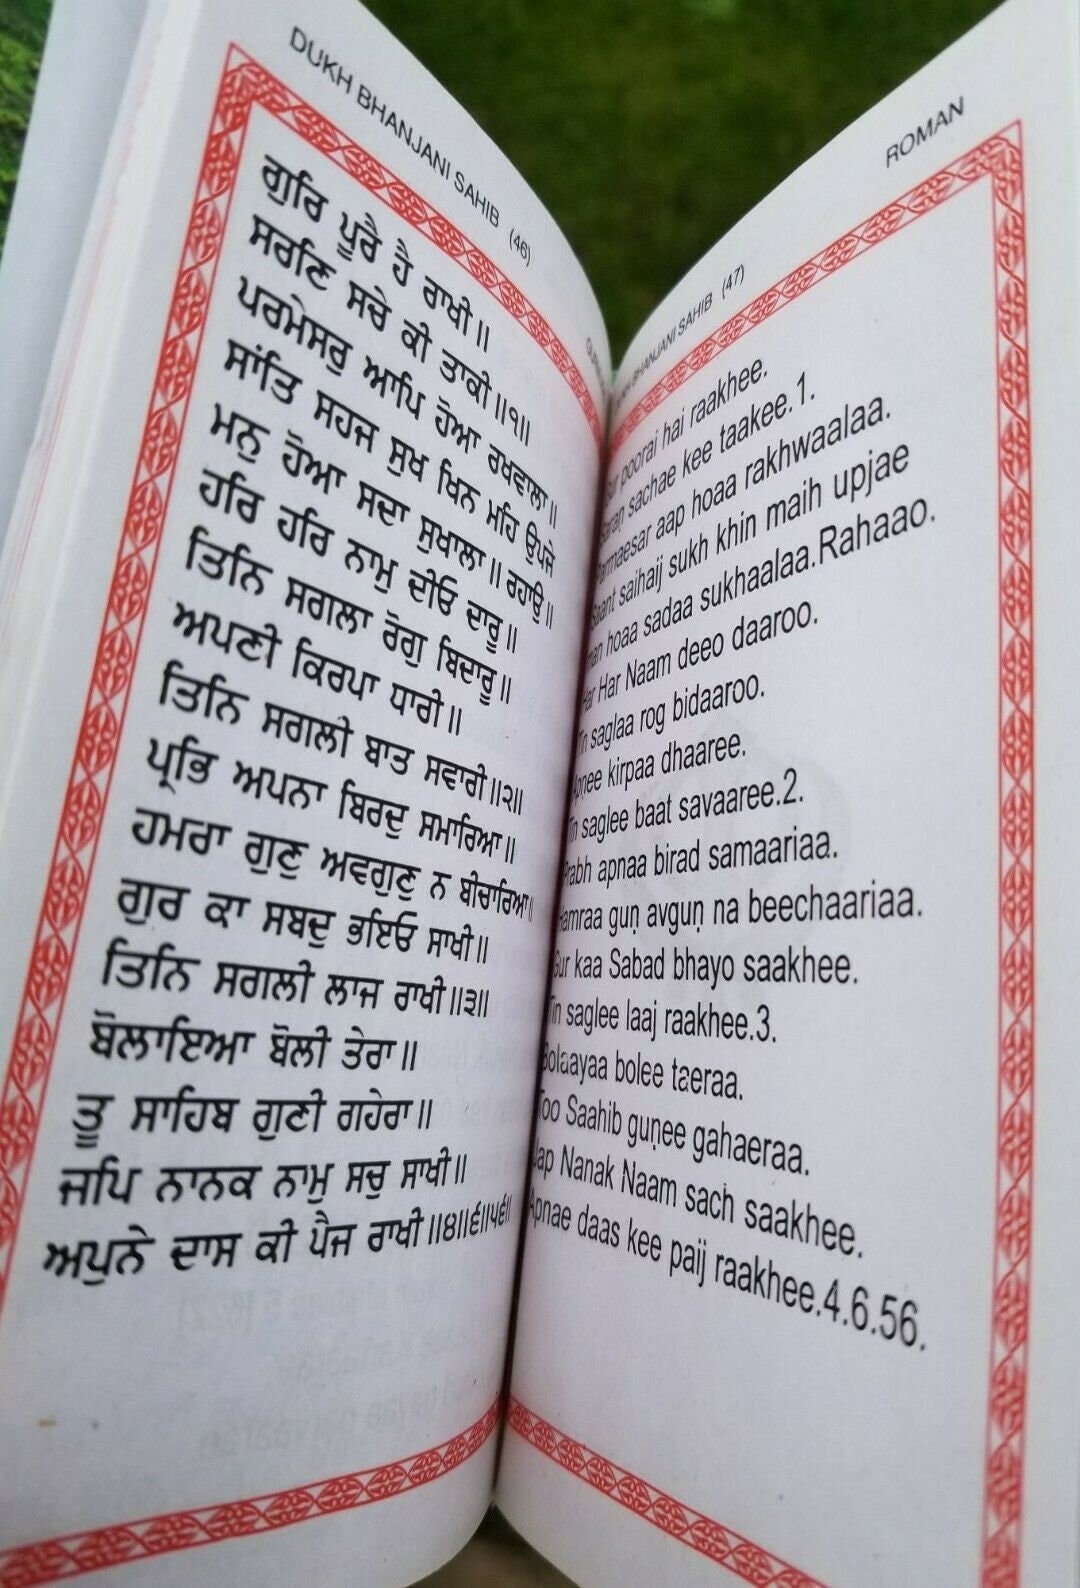 DUKH BHANJANI SAHIB (46)
ਗੁਰਿ ਪੂਰੈ ਹੈ ਰਾਖੀ॥
ਸਰਣਿ ਸਚੇ ਕੀ ਤਾਕੀ॥੧॥
ਪਰਮੇਸਰੁ ਆਪਿ ਹੋਆ ਰਖਵਾਲਾ॥
ਸਾਂਤਿ ਸਹਜ ਸੁਖ ਖਿਨ ਮਹਿ ਉਪਜੇ
ਮਨੁ ਹੋਆ ਸਦਾ ਸੁਖਾਲਾ॥ ਰਹਾਉ॥
ਹਰਿ ਹਰਿ ਨਾਮੁ ਦੀਓ ਦਾਰੂ॥
ਤਿਨਿ ਸਗਲਾ ਰੋਗੁ ਬਿਦਾਰੂ॥
ਅਪਣੀ ਕਿਰਪਾ ਧਾਰੀ॥
ਤਿਨਿ ਸਗਲੀ ਬਾਤ ਸਵਾਰੀ॥੨॥
ਪ੍ਰਭਿ ਅਪਨਾ ਬਿਰਦੁ ਸਮਾਰਿਆ॥
ਹਮਰਾ ਗੁਣੁ ਅਵਗੁਣੁ ਨ ਬੀਚਾਰਿਆ॥
ਗੁਰ ਕਾ ਸਬਦੁ ਭਇਓ ਸਾਖੀ॥
ਤਿਨਿ ਸਗਲੀ ਲਾਜ ਰਾਖੀ॥੩॥
ਬੋਲਾਇਆ ਬੋਲੀ ਤੇਰਾ॥
ਤੂ ਸਾਹਿਬ ਗੁਣੀ ਗਹੇਰਾ॥
ਜਪਿ ਨਾਨਕ ਨਾਮੁ ਸਚੁ ਸਾਖੀ॥
ਅਪੁਨੇ ਦਾਸ ਕੀ ਪੈਜ ਰਾਖੀ॥੪॥੬॥੫੬॥
BHANJANI SAHIB (47)
ROMAN
poorai hai raakhee.
sachae kee taakee.1.
aap hoaa rakhwaalaa.
saihaij sukh khin maih upjae
hoaa sadaa sukhaalaa.Rahaao.
Har Naam deeo daaroo.
saglaa rog bidaaroo.
Apṇee kirpaa dhaaree.
Tin saglee baat savaaree.2.
Prabh apnaa birad samaariaa.
Hamraa guṇ avguṇ na beechaariaa.
Gur kaa Sabad bhayo saakhee.
Tin saglee laaj raakhee.3.
Bolaayaa bolee taeraa.
Too Saahib guṇee gahaeraa.
Jap Nanak Naam sach saakhee.
Apnae daas kee paij raakhee.4.6.56.